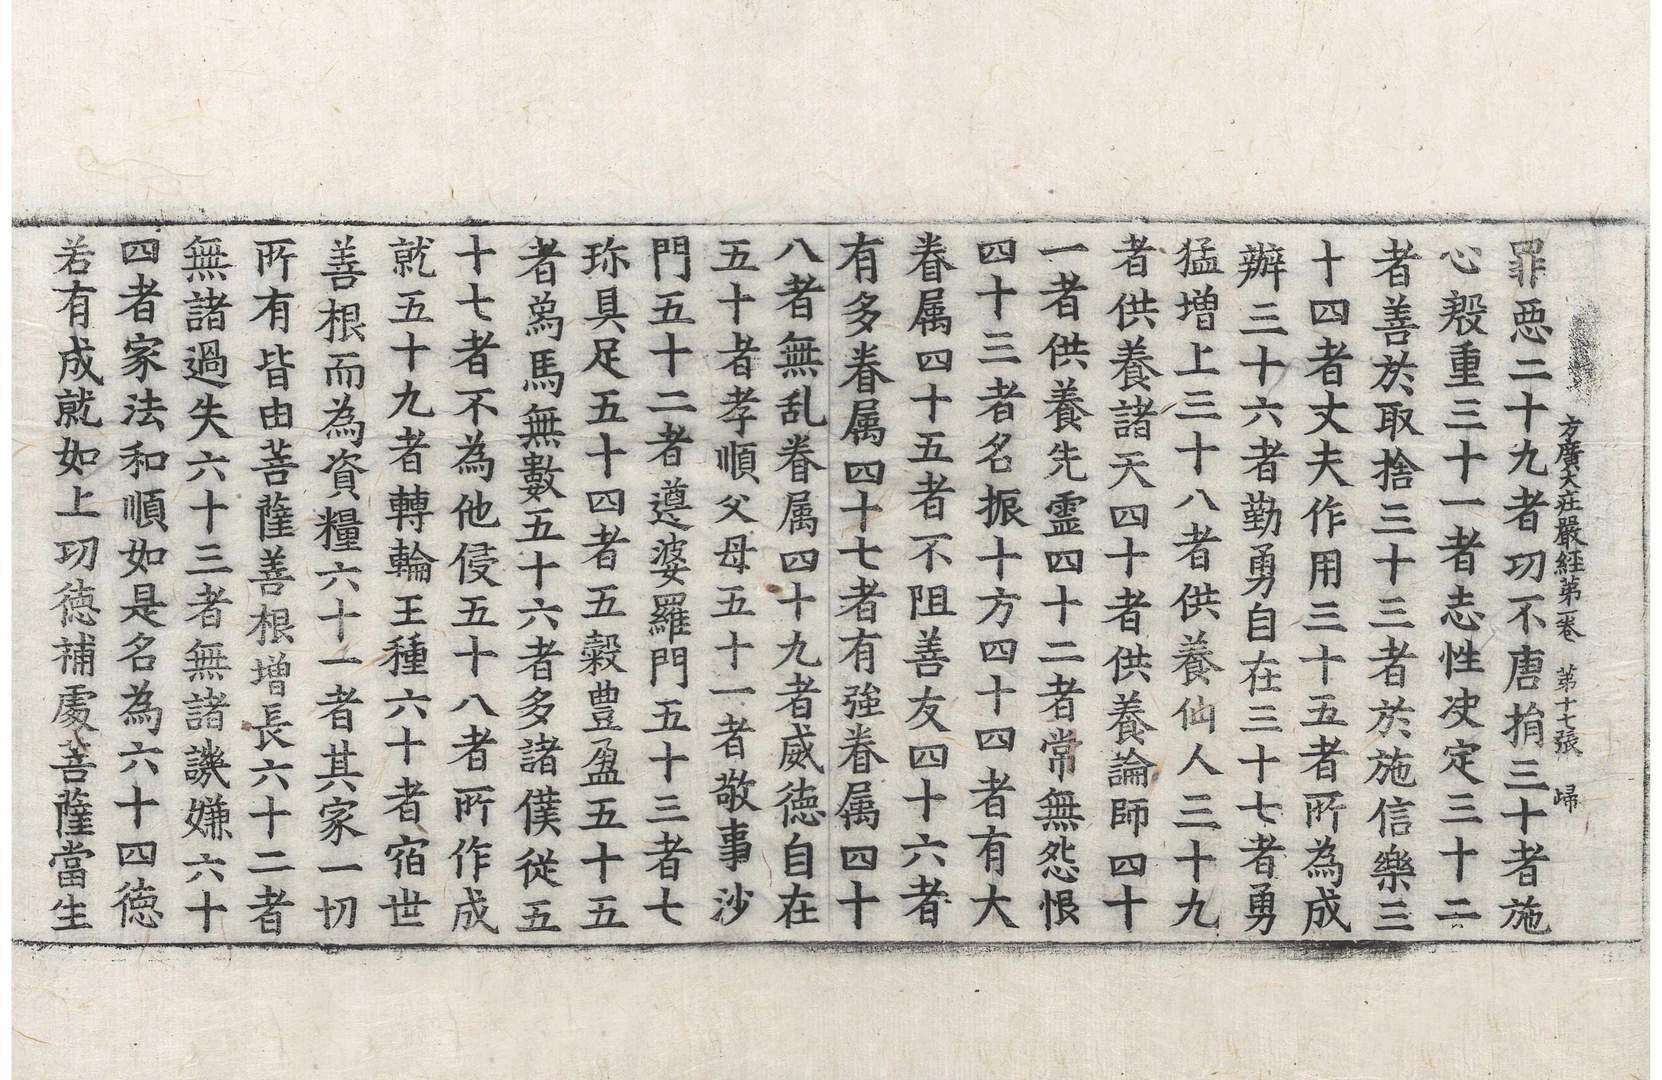 方廣大莊嚴經第一卷　第十七張　歸
罪惡二十九者功不唐捐三十者施
心殷重三十一者志性决定三十二
者善於取捨三十三者於施信樂三
十四者丈夫作用三十五者所為成
辦三十六者勤勇自在三十七者勇
猛增上三十八者供養仙人三十九
者供養諸天四十者供養論師四十
一者供養先靈四十二者常無怨恨
四十三者名振十方四十四者有大
眷属四十五者不阻善友四十六者
有多眷属四十七者有強眷属四十
八者無乱眷属四十九者威徳自在
五十者孝順父母五十一者敬事沙
門五十二者遵婆羅門五十三者七
珎具足五十四者五穀豊盈五十五
者為馬無數五十六者多諸僕従五
十七者不為他侵五十八者所作成
就五十九者轉輪王種六十者宿世
善根而為資糧六十一者其家一切
所有皆由菩薩善根增長六十二者
無諸過失六十三者無諸譏嫌六十
四者家法和順如是名為六十四徳
若有成就如上功徳補處菩薩當生